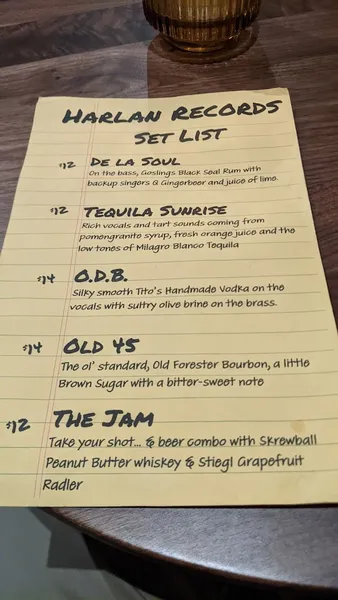 Harlan Records
Set List
$12 De La Soul
On the bass, Goslings Black Seal Rum with
backup singers & Gingerbeer and juice of lime.
$12 Tequila Sunrise
Rich vocals and tart sounds coming from
pomengranite syrup, fresh orange juice and the
low tones of Milagro Blanco Tequila
$14 O.D.B.
Silky smooth Tito's Handmade Vodka on the
vocals with sultry olive brine on the brass.
$14 Old 45
The ol' standard, Old Forester Bourbon, a little
Brown Sugar with a bitter-sweet note
$12 The Jam
Take your shot... & beer combo with Skrewball
Peanut Butter whiskey & Stiegl Grapefruit
Radler